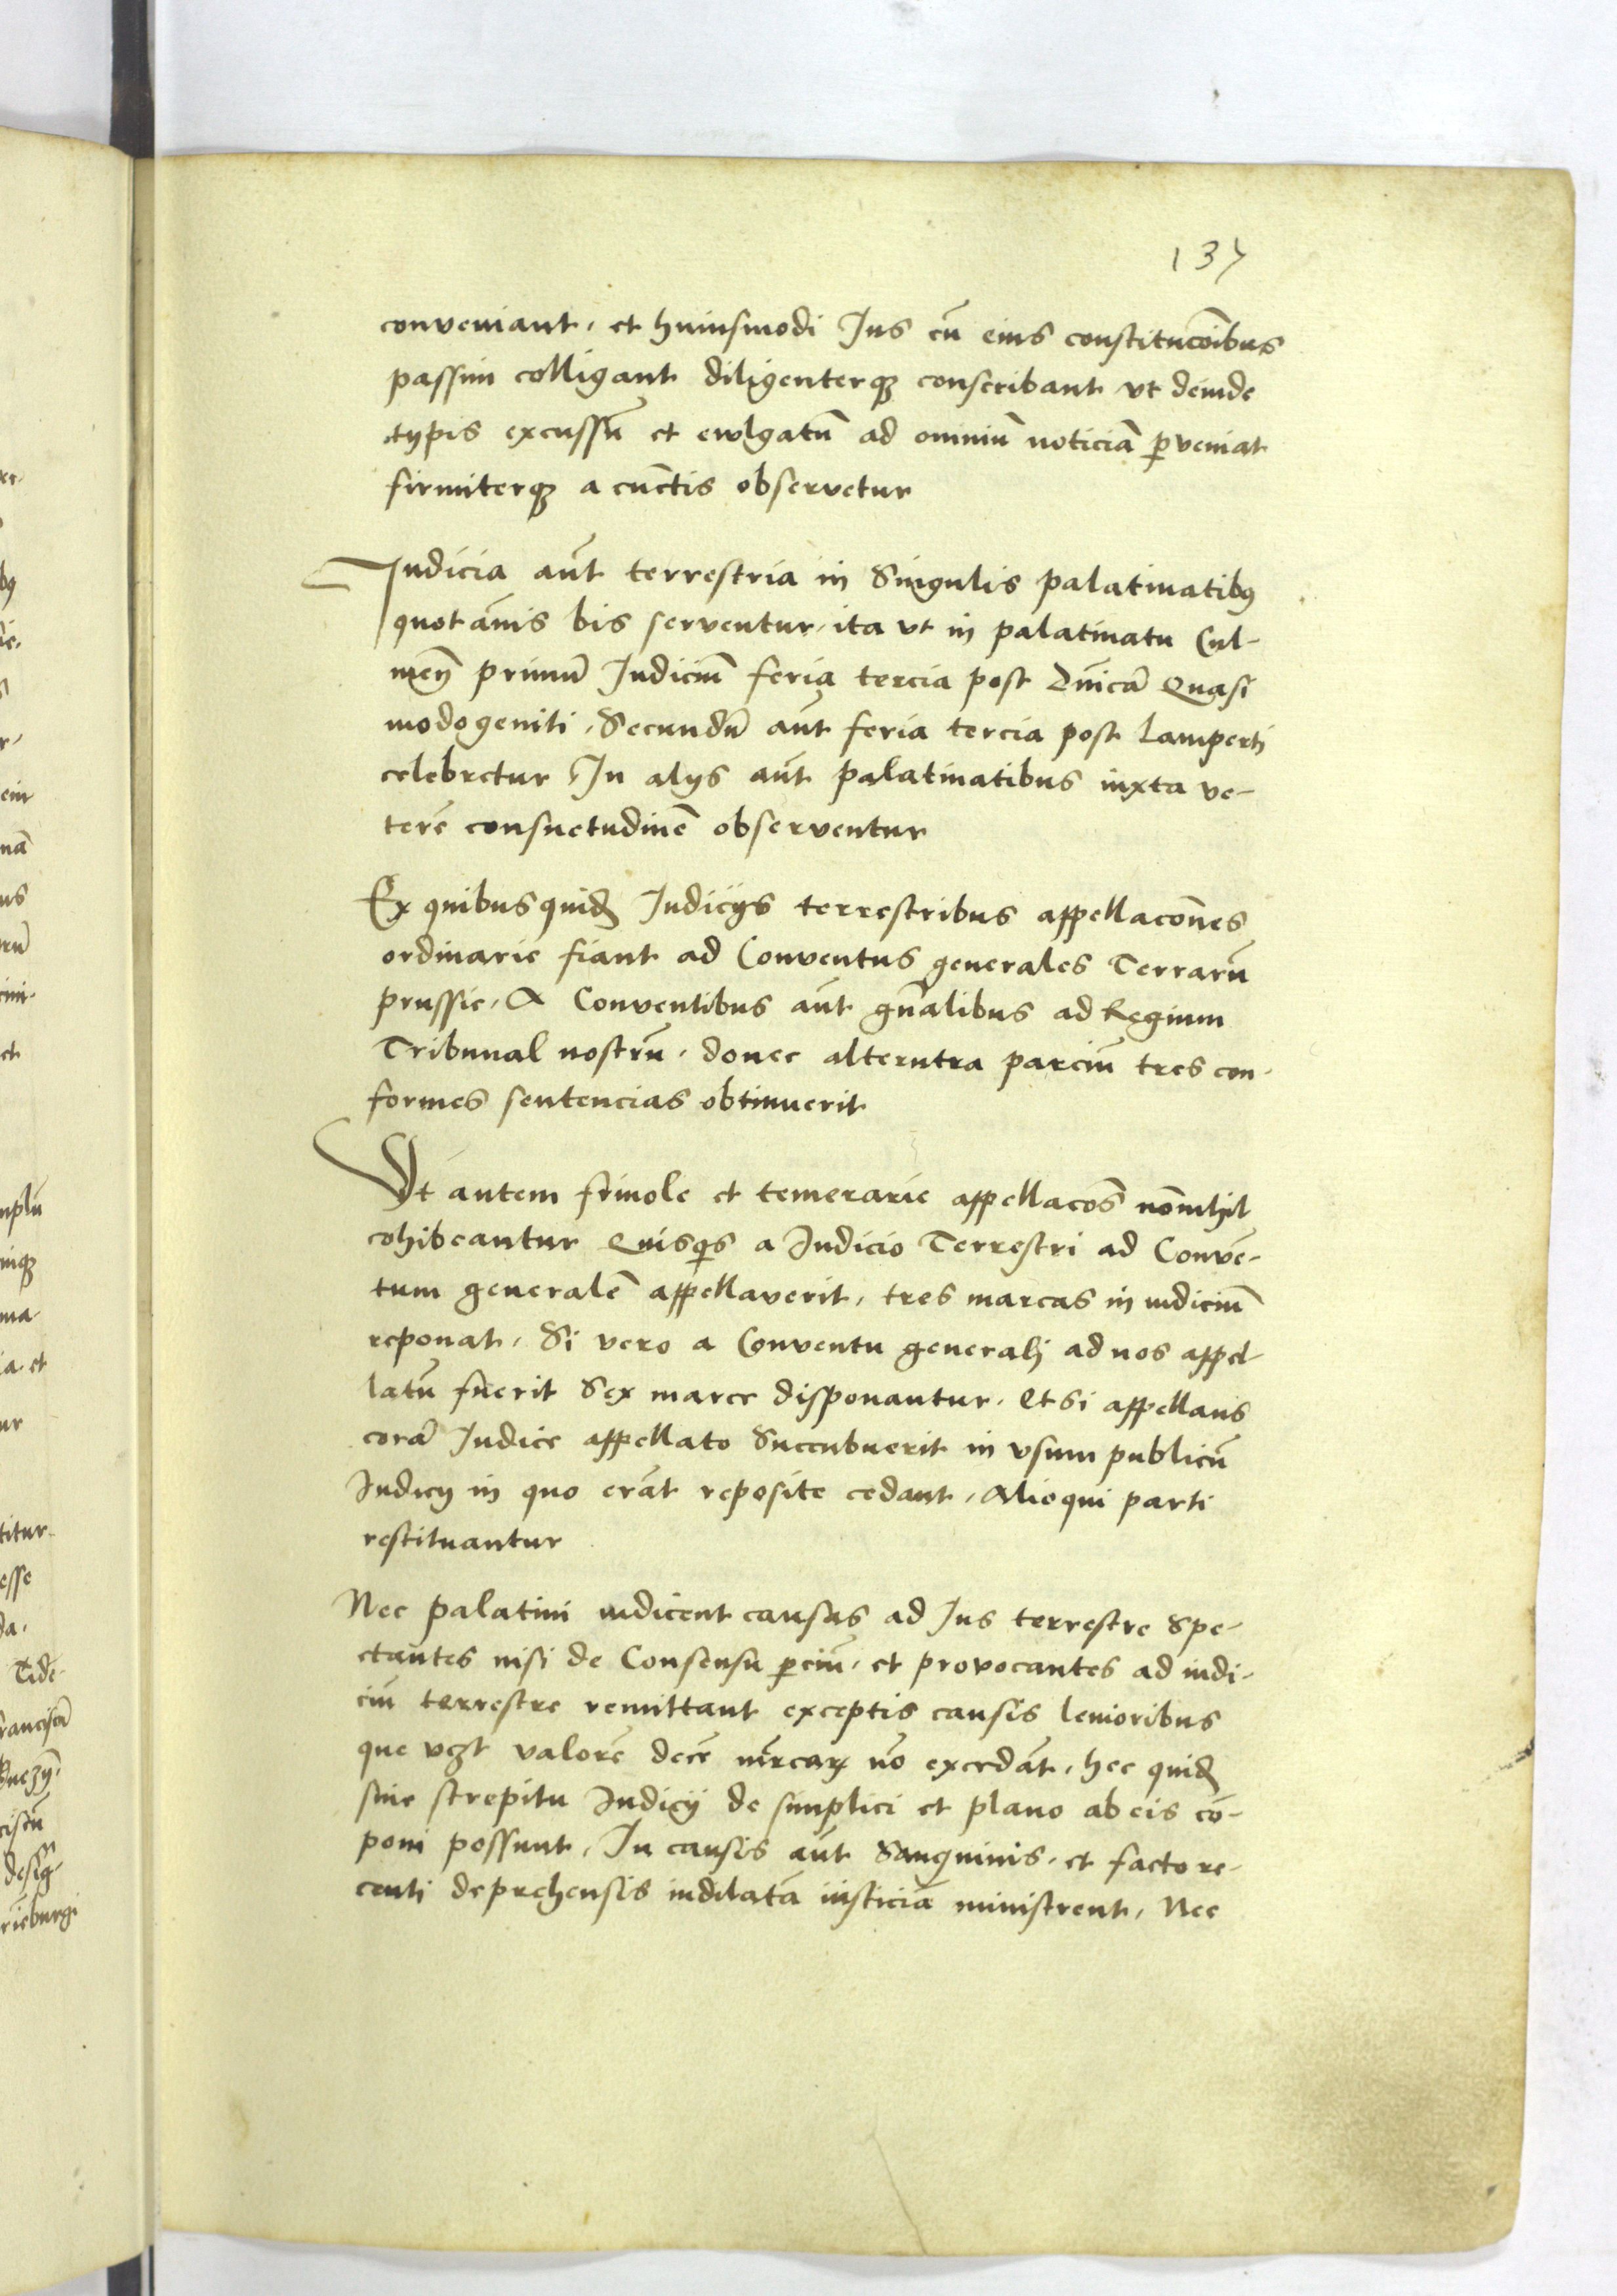 137
conveniant, et huiusmodi Jus cū eius constitucōibus
passim colligant diligenterqꝫ conscribant vt deinde
typis excussū et ewlgatū ad omniū noticiā ꝑveniat
firmiterqꝫ a cūctis observetur
Iudicia aūt terrestria in Singulis palatinatibꝰ
quotānis bis serventur, ita vt in palatinatu Cul-
meñ primū Judiciū feria tercia post Dnīcā Quasi
modogeniti, Secundū aūt feria tercia post Lamperti
celebretur, In alijs aūt palatinatibus iuxta ve-
terē consuetudinē observentur
Ex quibusquidē Judicijs terrestribus appellacōnes
ordinarie fiant ad Conventus generales Terrarū
prussie, A Conventibus aūt gn̄alibus ad Regium
Tribunal nostrū, donec alterutra parciū tres con-
formes sentencias obtinuerit
Ut autem frivole et temerarie appellacōs nōnihil
cohibeantur Quisqꝫs a Iudicio Terrestri ad Convē-
tum generalē appellaverit, tres marcas in iudiciū
reponat, Si vero a Conventu generali ad nos appel-
latū fuerit Sex marce disponantur, Et si appellans
corā Judice appellato Succubuerit in vsum publicū
Iudicij in quo erāt reposite cedant, Alioqui parti
restituantur
Nec palatini iudicent causas ad Jus terrestre Spe-
ctantes nisi de Consensu ꝑciū, et provocantes ad iudi-
ciū terrestre remittant exceptis causis levioribus
que vꝫt valorē decē mrcaꝝ nō excedāt, hec quidē
sine strepitu Iudicij de simplici et plano ab eis cō-
poni possunt, In causis aūt Sanguinis, et facto re-
centi deprehensis indilatā iusticiā ministrent, Nec